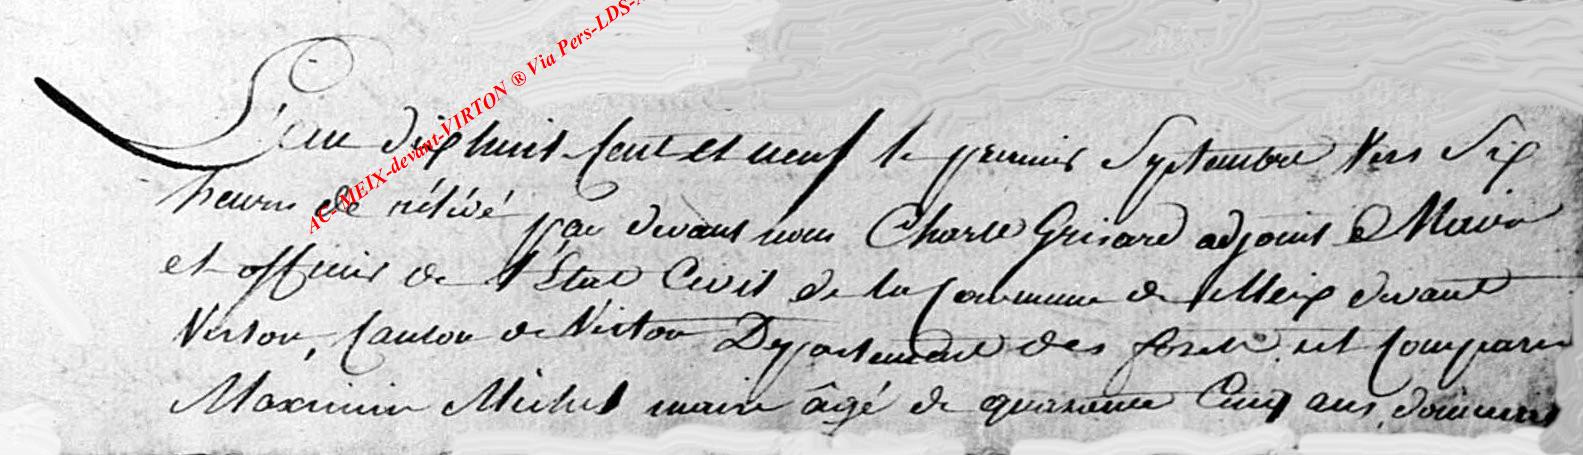 AC-MEIX-devant-VIRTON ® Via Pers-LDS-
L'an dix huit Cent et neuf le premier Septembre Vers Six
heures de rélévé par devant nous Charle Grisard adjoint Maire
et officier de l'Etat Civil de la Commune de Meix devant
Virton, Canton de Virton Departement des forets est Comparu
Maximin Michel maire âgé de quarante Cinq ans,